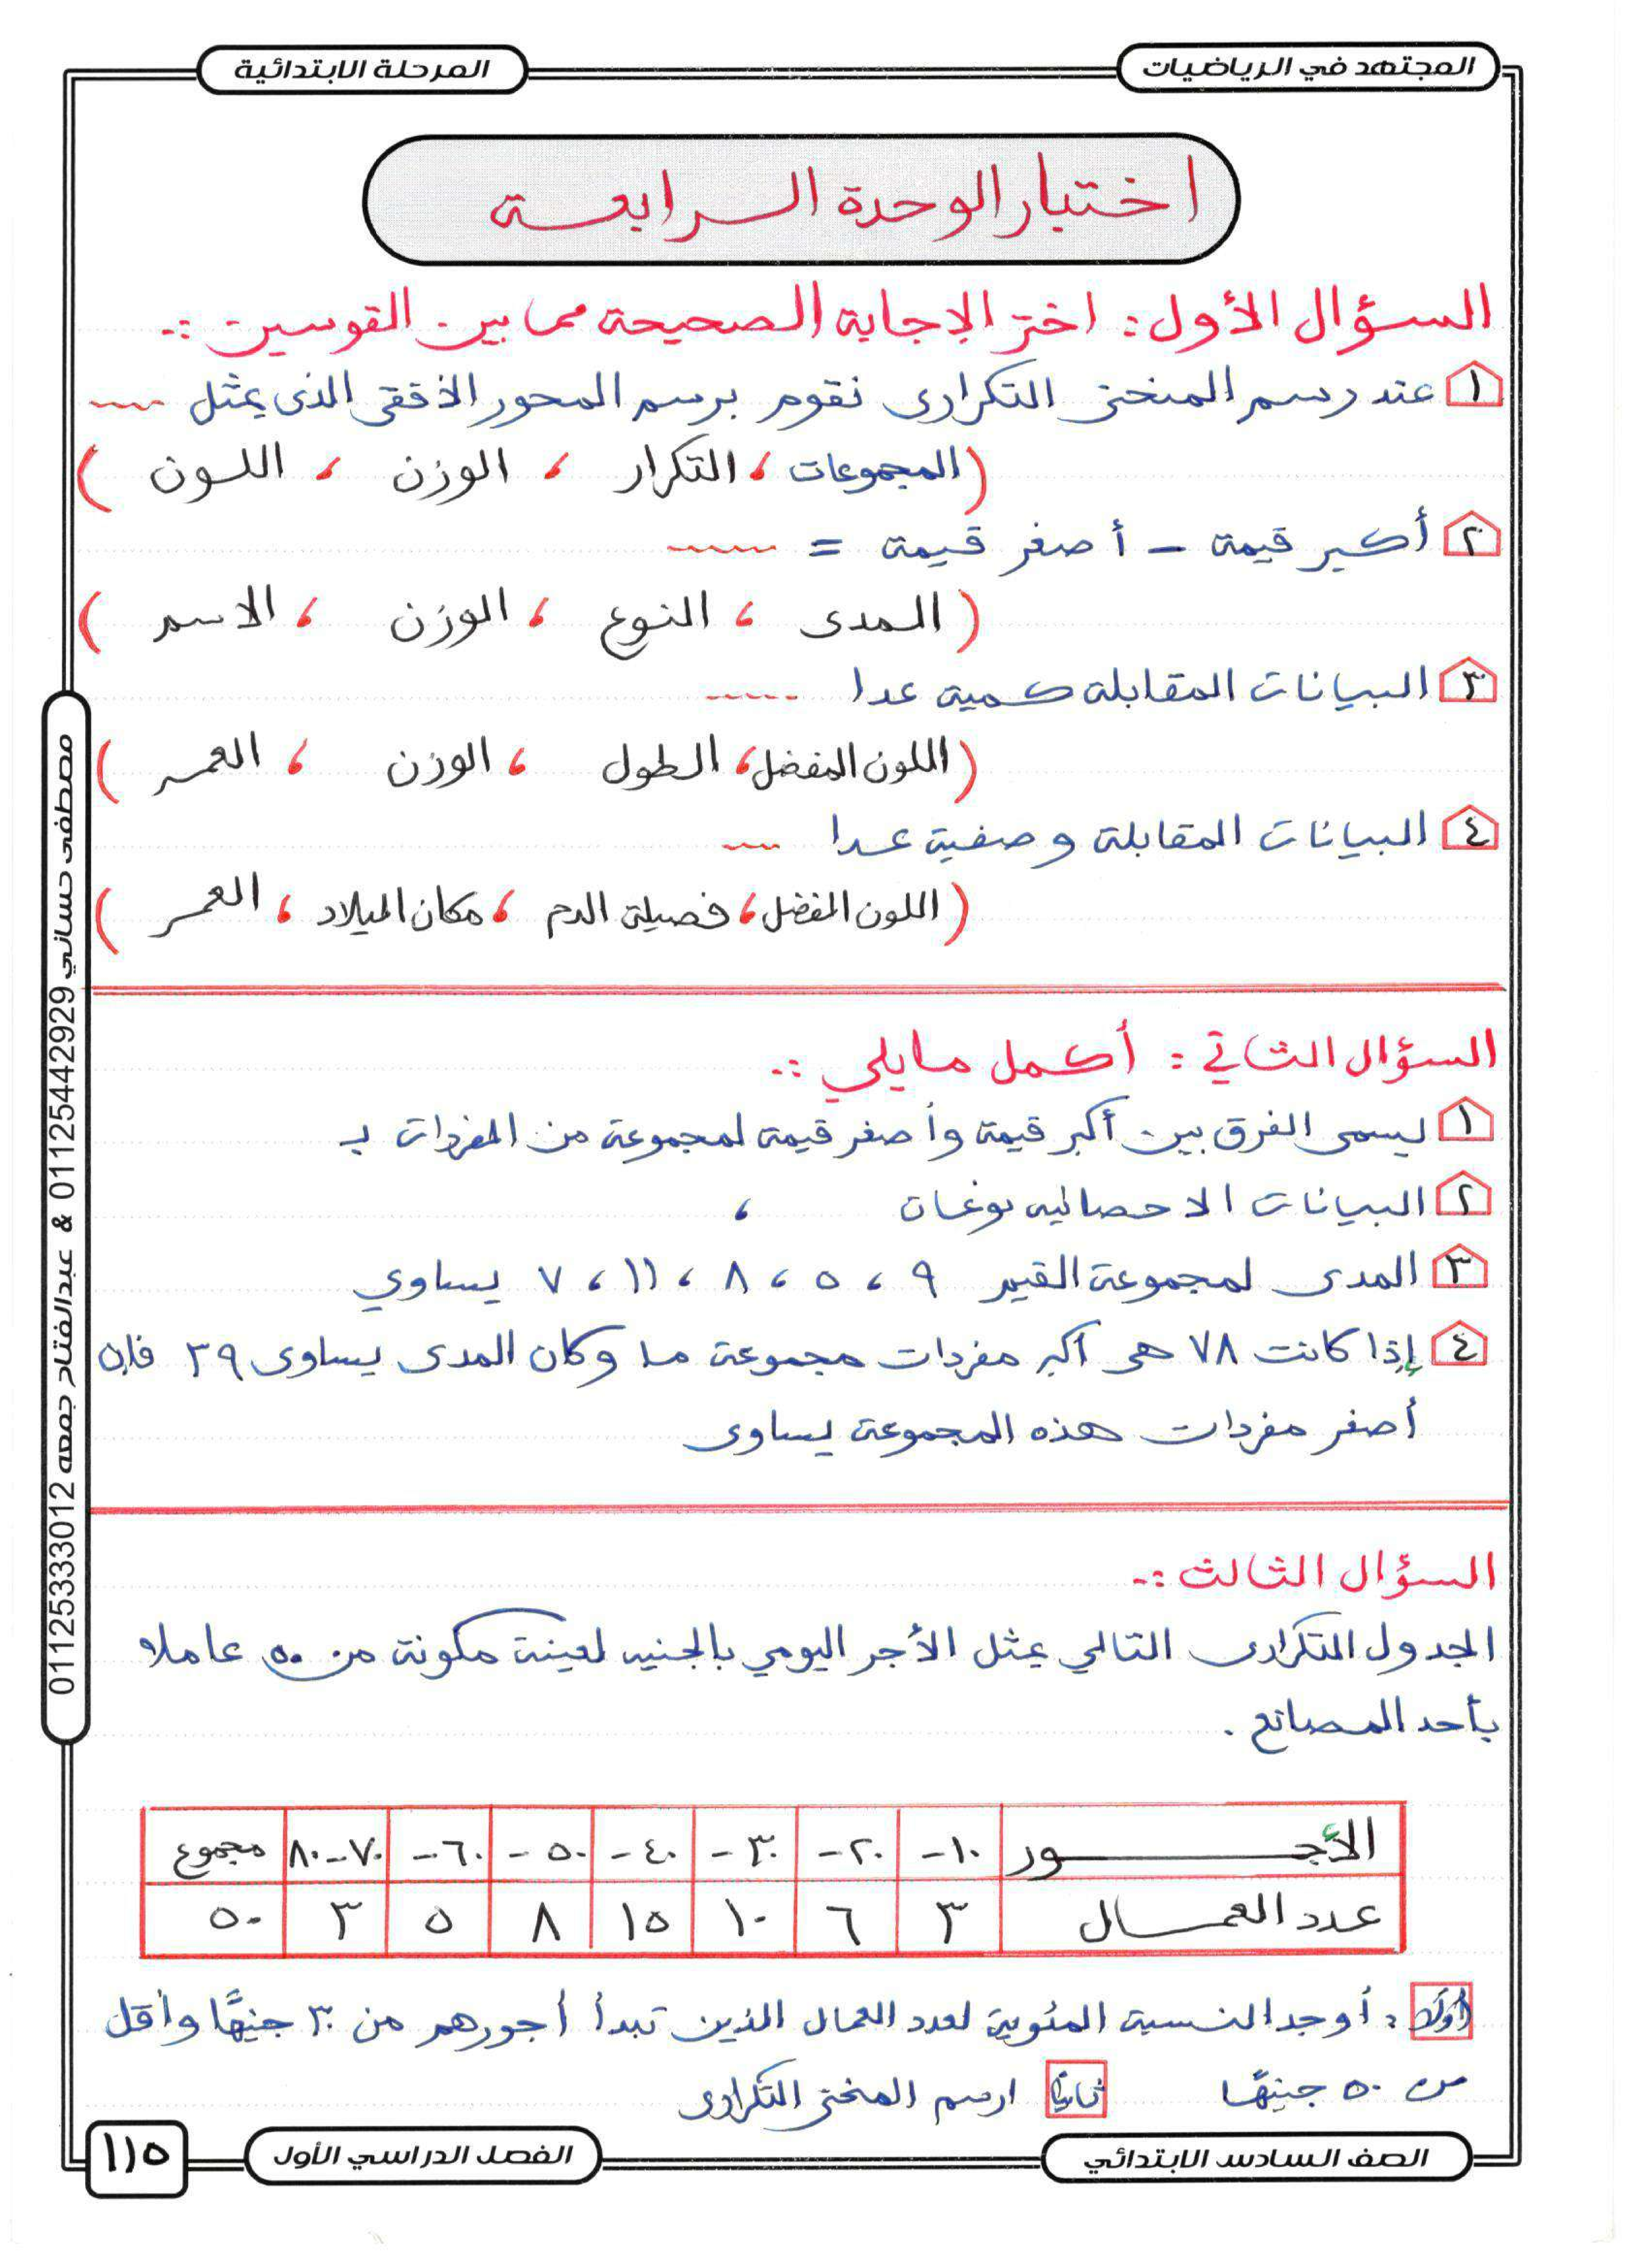 المجتهد في الرياضيات
المرحلة الابتدائية
اختبار الوحدة الرابعة
السؤال الأول : اختر الإجابة الصحيحة مما بين القوسين :-
١ عند رسم المنحنى التكرارى نقوم برسم المحور الأفقى الذى يمثل ----
( المجموعات ، التكرار ، الوزن ، اللون )
٢ أكبر قيمة - أصغر قيمة = -----
( المدى ، النوع ، الوزن ، الاسم )
٣ البيانات المقابلة كمية عدا -----
( اللون المفضل ، الطول ، الوزن ، العمر )
٤ البيانات المقابلة وصفية عدا ---
( اللون المفضل ، فصيلة الدم ، مكان الميلاد ، العمر )
السؤال الثاني : أكمل مايلي :-
١ يسمى الفرق بين أكبر قيمة وأصغر قيمة لمجموعة من المفردات بـ
٢ البيانات الاحصائيه نوعان ،
٣ المدى لمجموعة القيم ٩ ، ٥ ، ٨ ، ١١ ، ٧ يساوي
٤ إذا كانت ٧٨ هى أكبر مفردات مجموعة ما وكان المدى يساوى ٣٩ فإن
أصغر مفردات هذه المجموعة يساوى
السؤال الثالث :-
الجدول التكرارى التالي يمثل الأجر اليومي بالجنيه لعينة مكونة من ٥٠ عاملا
بأحد المصانع .
الأجـــور ١٠- ٢٠- ٣٠- ٤٠- ٥٠- ٦٠- ٧٠-٨٠ مجموع
عدد العمـــال ٣ ٦ ١٠ ١٥ ٨ ٥ ٣ ٥٠
أولا : أوجد النسبة المئوية لعدد العمال الذين تبدأ أجورهم من ٣٠ جنيهًا وأقل
من ٥٠ جنيهًا ثانيًا ارسم المنحنى التكرارى
الصف السادس الابتدائي
الفصل الدراسي الأول
١١٥
مصطفى حساني 01125442929 & عبدالفتاح جمعه 01125333012